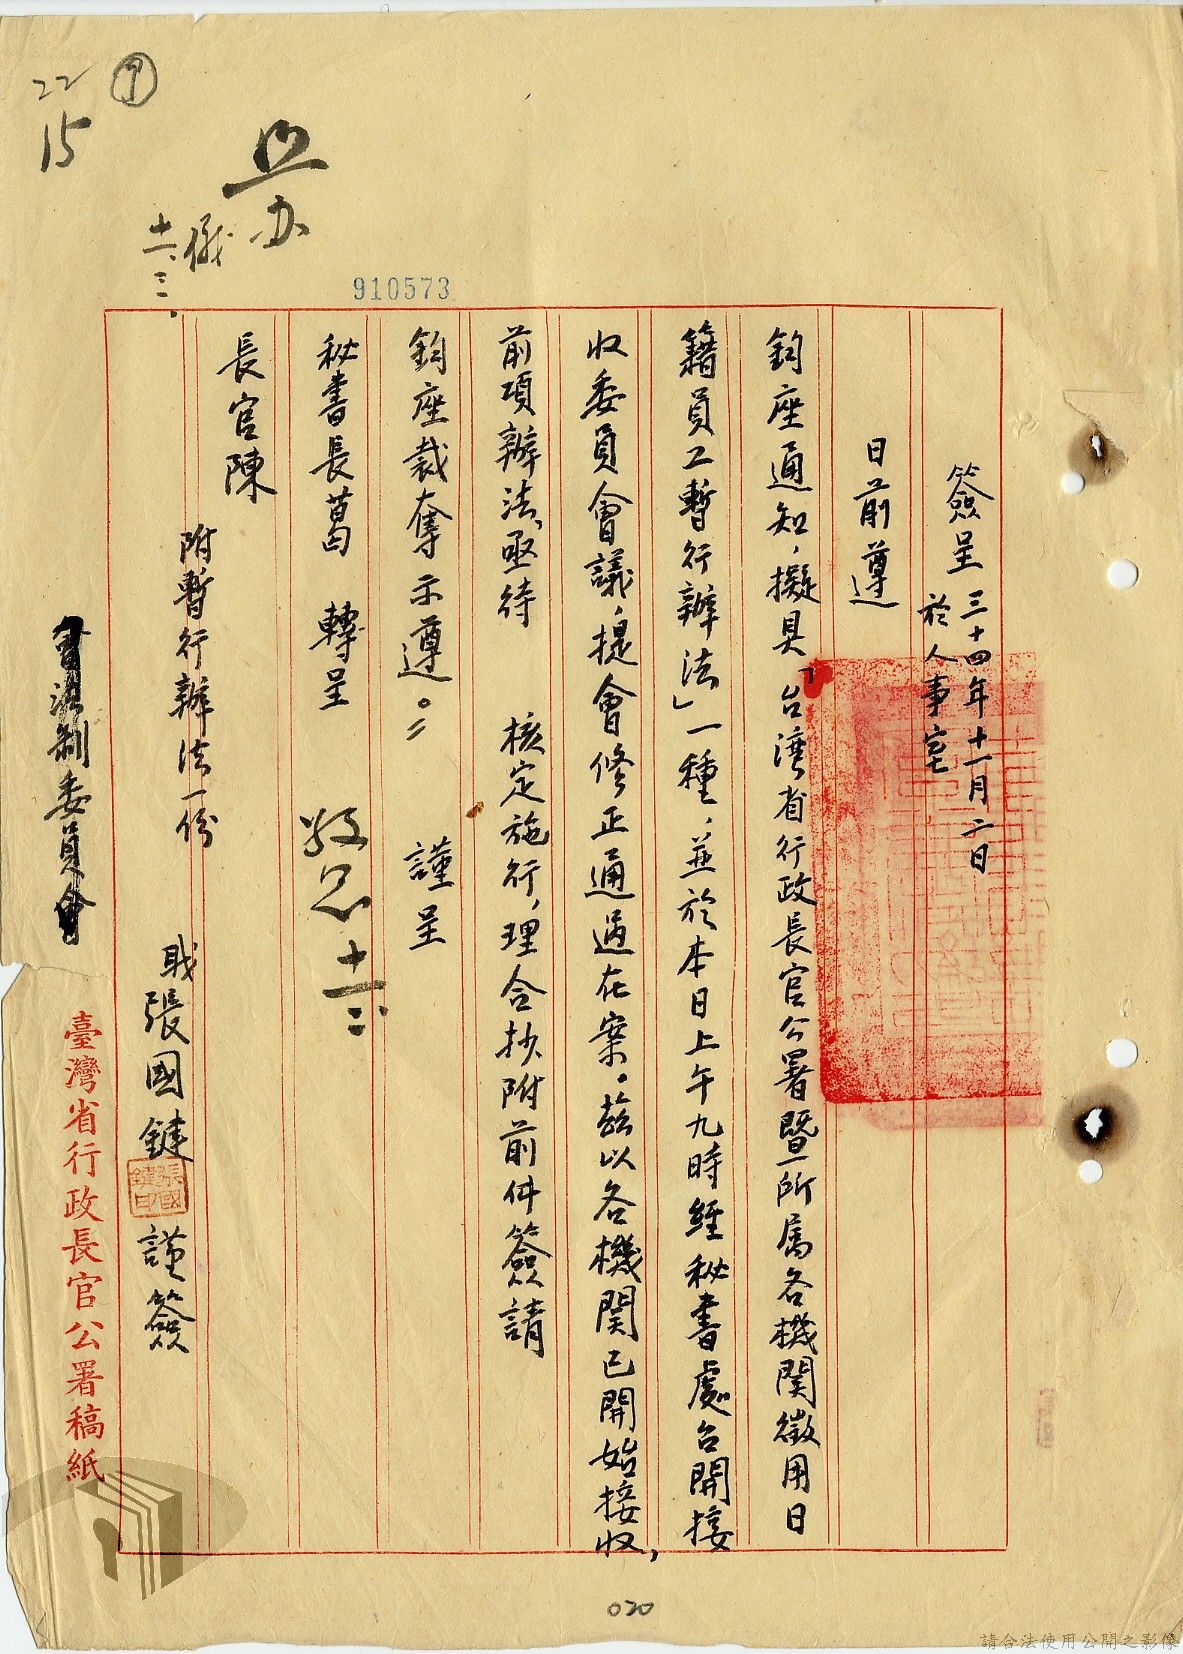 簽呈 三十四年十一月二日
於人事室
日前遵
鈞座通知，擬具「台湾省行政長官公署暨所屬各機関徵用日
籍員工暫行辦法」一種，並於本日上午九時經秘書處召開接
收委員會議，提會修正通過在案。茲以各機関已開始接收，
前項辦法，亟待 核定施行，理合抄附前件簽請
鈞座裁奪示遵。 謹呈
秘書長葛 轉呈
長官陳
附暫行辦法一份
職張國鍵 謹簽
張國鍵印
會法制委員會
臺灣省行政長官公署稿紙
照办
儀
十一、三、
敬恩 十一、二
910573
22
15
7
020
請合法使用公開之影像